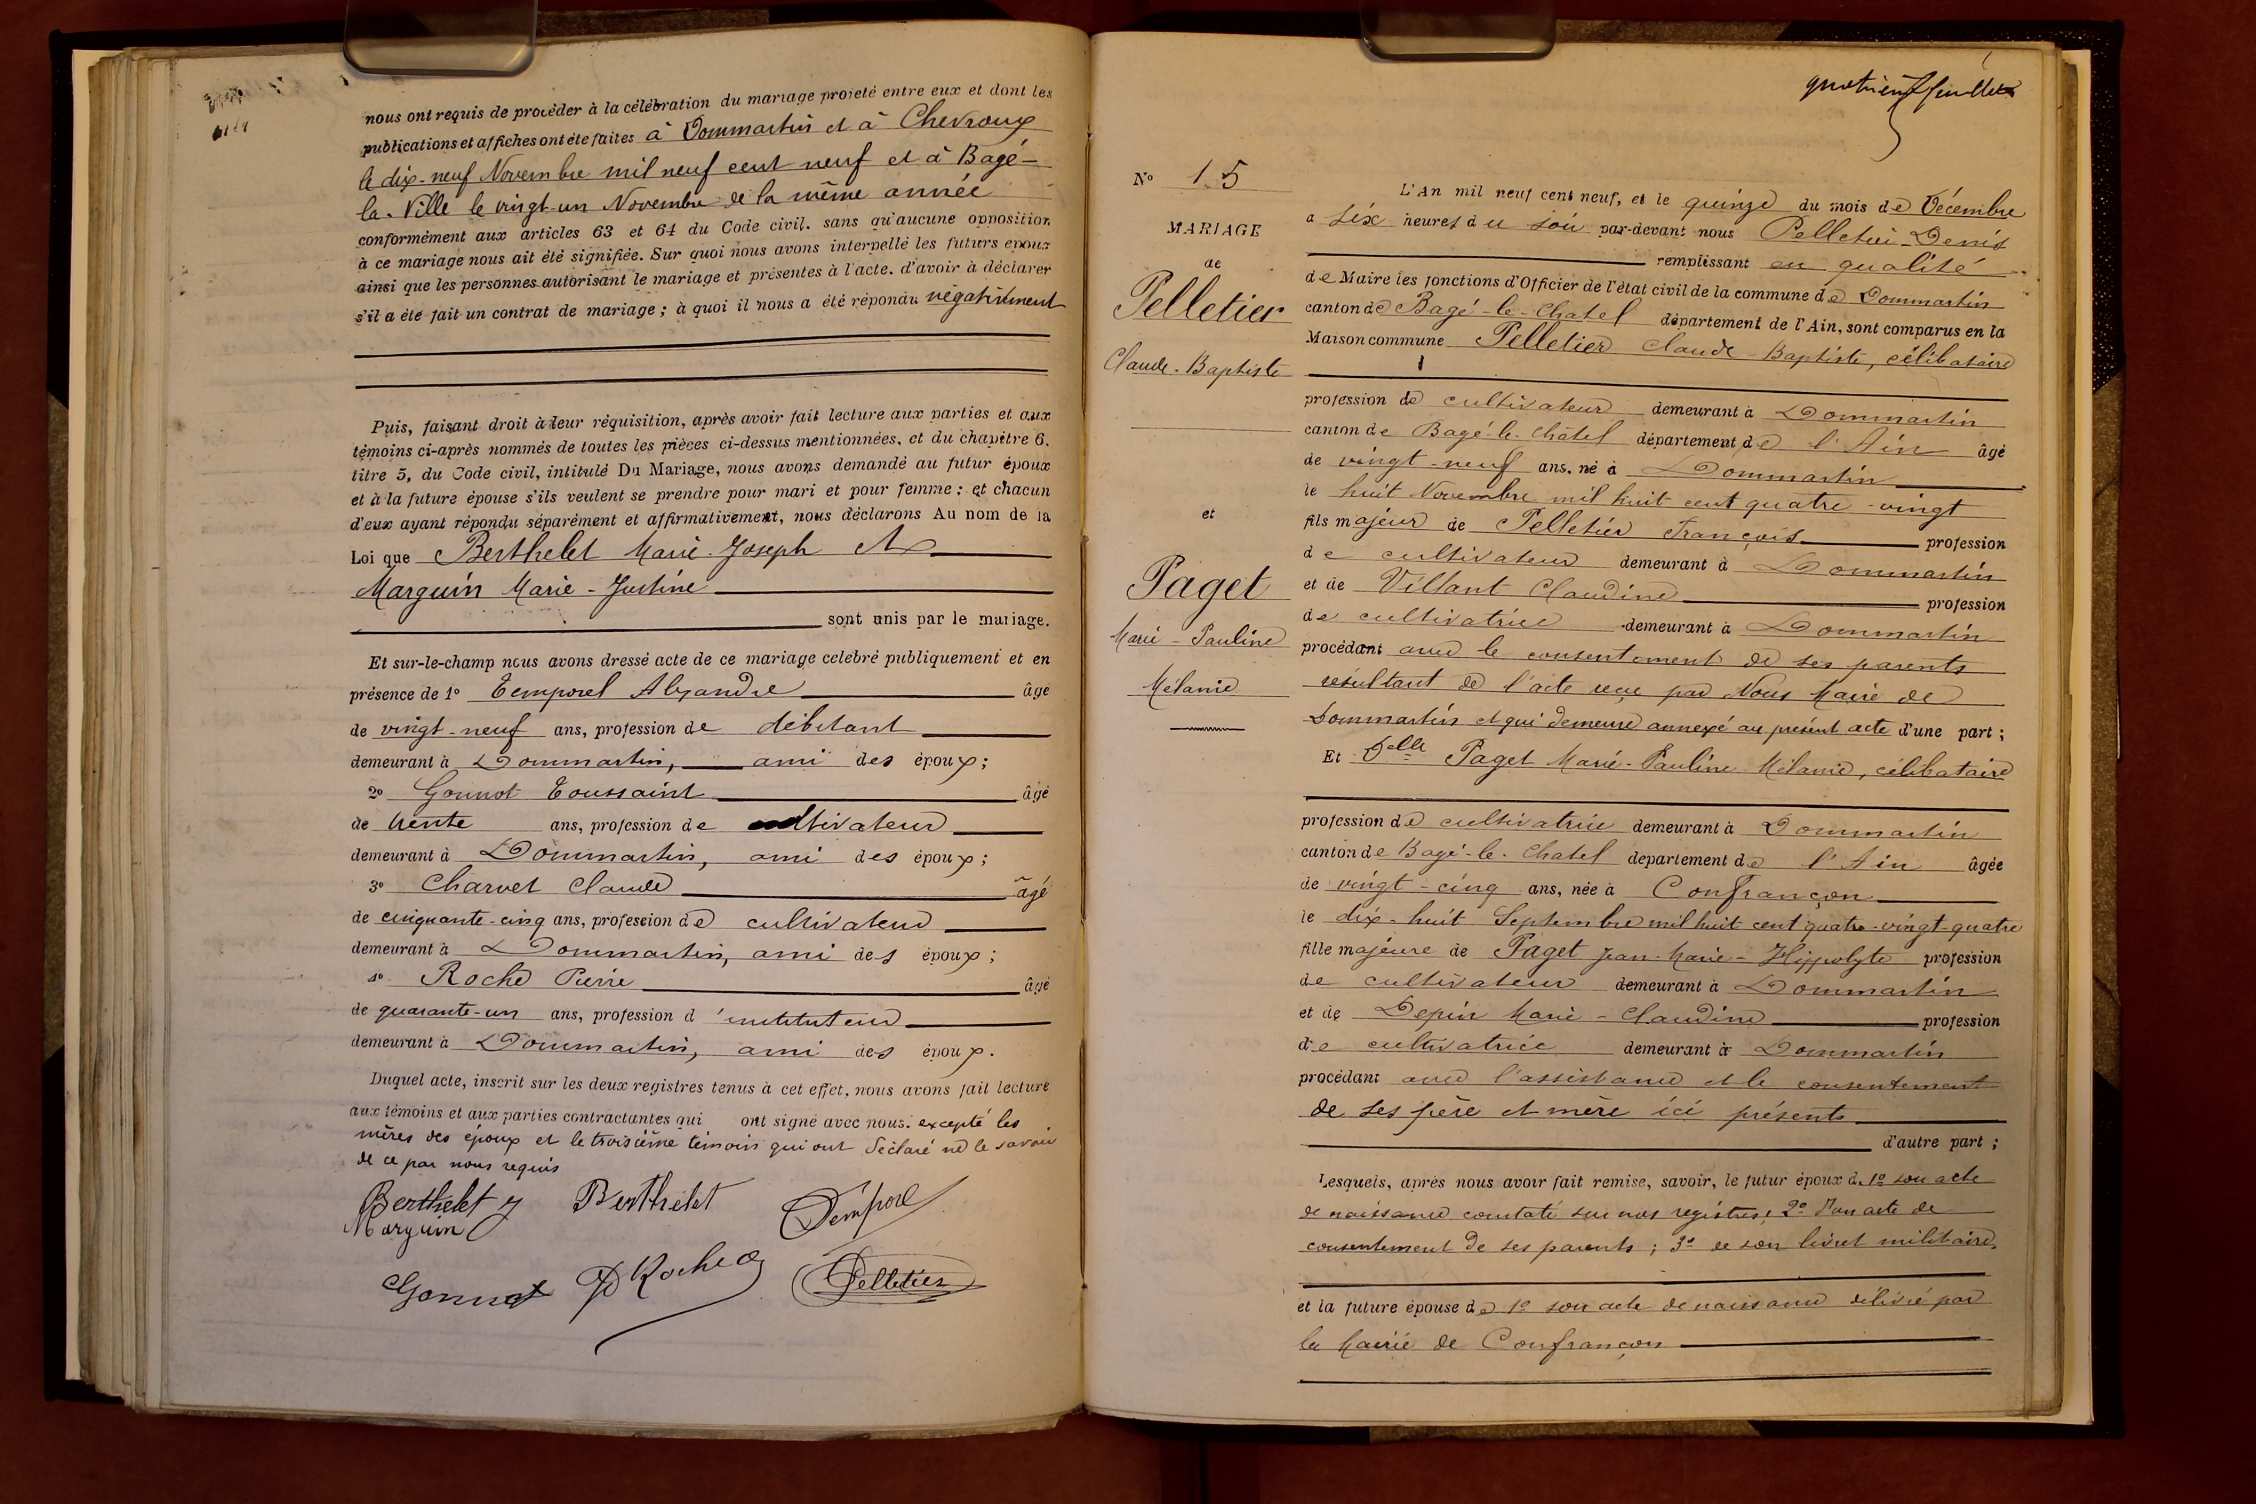 nous ont requis de procéder à la célébration du mariage projeté entre eux et dont les
publications et affiches ont été faites à Dommartin et à Chevroux
le dix-neuf Novembre mil neuf cent neuf et à Bagé-
la-Ville le vingt-un Novembre de la même année
conformément aux articles 63 et 64 du Code civil, sans qu'aucune opposition
à ce mariage nous ait été signifiée. Sur quoi nous avons interpellé les futurs époux
ainsi que les personnes autorisant le mariage et présentes à l'acte, d'avoir à déclarer
s'il a été fait un contrat de mariage ; à quoi il nous a été répondu négativement
Puis, faisant droit à leur réquisition, après avoir fait lecture aux parties et aux
témoins ci-après nommés de toutes les pièces ci-dessus mentionnées, et du chapitre 6,
titre 5, du Code civil, intitulé Du Mariage, nous avons demandé au futur époux
et à la future épouse s'ils veulent se prendre pour mari et pour femme : et chacun
d'eux ayant répondu séparément et affirmativement, nous déclarons Au nom de la
Loi que Berthelet Marie-Joseph et
Marguin Marie-Justine
sont unis par le mariage.
Et sur-le-champ nous avons dressé acte de ce mariage célébré publiquement et en
présence de 1° Temporel Alexandre âgé
de vingt-neuf ans, profession de débitant
demeurant à Dommartin, ami des époux ;
2° Gonnot Toussaint âgé
de trente ans, profession de cultivateur
demeurant à Dommartin, ami des époux ;
3° Charvet Claude âgé
de cinquante-cinq ans, profession de cultivateur
demeurant à Dommartin, ami des époux ;
4° Roche Pierre âgé
de quarante-un ans, profession d'instituteur
demeurant à Dommartin, ami des époux.
Duquel acte, inscrit sur les deux registres tenus à cet effet, nous avons fait lecture
aux témoins et aux parties contractantes qui ont signé avec nous. excepté les
mères des époux et le troisième témoin qui ont déclaré ne le savoir
de ce par nous requis
Berthelet J Berthelet Temporel
Marguin
Gonnot P Roche Pelletier
quatrième feuillet
N° 15
MARIAGE
de
Pelletier
Claude-Baptiste
et
Paget
Marie-Pauline
Mélanie
L'An mil neuf cent neuf, et le quinze du mois de Décembre
a six heures du soir par-devant nous Pelletier Denis
remplissant en qualité
de Maire les fonctions d'Officier de l'état civil de la commune de Dommartin
canton de Bagé-le-Chatel département de l'Ain, sont comparus en la
Maison commune Pelletier Claude Baptiste, célibataire
profession de cultivateur demeurant à Dommartin
canton de Bagé-le-Châtel département de l'Ain âgé
de vingt-neuf ans, né à Dommartin
le huit Novembre mil huit cent quatre-vingt
fils majeur de Pelletier François profession
de cultivateur demeurant à Dommartin
et de Villant Claudine profession
de cultivatrice demeurant à Dommartin
procédant avec le consentement de ses parents
résultant de l'acte reçu par Nous Maire de
Dommartin et qui demeure annexé au présent acte d'une part ;
Et Delle Paget Marie-Pauline Mélanie, célibataire
profession de cultivatrice demeurant à Dommartin
canton de Bagé-le-Chatel département de l'Ain âgée
de vingt-cinq ans, née à Confrançon
le dix-huit Septembre mil huit cent quatre-vingt-quatre
fille majeure de Paget Jean-Marie-Hippolyte profession
de cultivateur demeurant à Dommartin
et de Depin Marie-Claudine profession
de cultivatrice demeurant à Dommartin
procédant avec l'assistance et le consentement
de ses père et mère ici présents
d'autre part ;
Lesquels, après nous avoir fait remise, savoir, le futur époux d 1° son acte
de naissance constaté sur nos registres ; 2° d'un acte de
consentement de ses parents ; 3° de son livret militaire,
et la future épouse de 1° son acte de naissance délivré par
la Mairie de Confrançon